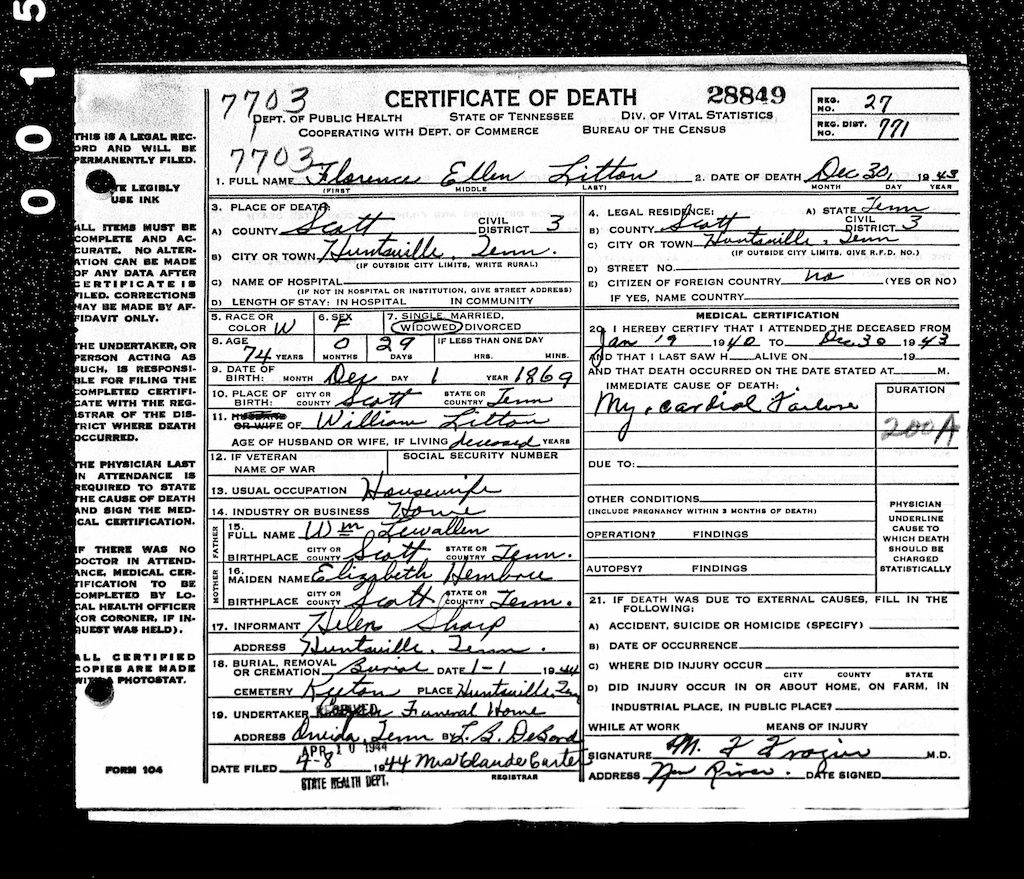 0015
7703 CERTIFICATE OF DEATH 28849
DEPT. OF PUBLIC HEALTH STATE OF TENNESSEE DIV. OF VITAL STATISTICS
COOPERATING WITH DEPT. OF COMMERCE BUREAU OF THE CENSUS
REG. NO. 27
REG. DIST. NO. 771
THIS IS A LEGAL REC-
ORD AND WILL BE
PERMANENTLY FILED.
TE LEGIBLY
USE INK
ALL ITEMS MUST BE
COMPLETE AND AC-
CURATE. NO ALTER-
ATION CAN BE MADE
OF ANY DATA AFTER
CERTIFICATE IS
FILED. CORRECTIONS
MAY BE MADE BY AF-
FIDAVIT ONLY.
THE UNDERTAKER, OR
PERSON ACTING AS
SUCH, IS RESPONSI-
BLE FOR FILING THE
COMPLETED CERTIFI-
CATE WITH THE REG-
ISTRAR OF THE DIS-
TRICT WHERE DEATH
OCCURRED.
THE PHYSICIAN LAST
IN ATTENDANCE IS
REQUIRED TO STATE
THE CAUSE OF DEATH
AND SIGN THE MED-
ICAL CERTIFICATION.
IF THERE WAS NO
DOCTOR IN ATTEND-
ANCE, MEDICAL CER-
TIFICATION TO BE
COMPLETED BY LO-
CAL HEALTH OFFICER
(OR CORONER, IF IN-
QUEST WAS HELD).
ALL CERTIFIED
COPIES ARE MADE
WITH PHOTOSTAT.
FORM 104
7703
1. FULL NAME Florence Ellen Litton 2. DATE OF DEATH Dec 30, 1943
(FIRST) MIDDLE LAST) MONTH DAY YEAR
3. PLACE OF DEATH:
A) COUNTY Scott CIVIL DISTRICT 3
B) CITY OR TOWN Huntsville, Tenn.
(IF OUTSIDE CITY LIMITS, WRITE RURAL)
C) NAME OF HOSPITAL
(IF NOT IN HOSPITAL OR INSTITUTION, GIVE STREET ADDRESS)
D) LENGTH OF STAY: IN HOSPITAL IN COMMUNITY
5. RACE OR COLOR W 6. SEX F 7. SINGLE, MARRIED, WIDOWED DIVORCED
8. AGE 74 YEARS 0 MONTHS 29 DAYS IF LESS THAN ONE DAY HRS. MINS.
9. DATE OF BIRTH: MONTH Dec DAY 1 YEAR 1869
10. PLACE OF BIRTH: CITY OR COUNTY Scott STATE OR COUNTRY Tenn
11. HUSBAND OR WIFE OF William Litton
AGE OF HUSBAND OR WIFE, IF LIVING deceased YEARS
12. IF VETERAN NAME OF WAR SOCIAL SECURITY NUMBER
13. USUAL OCCUPATION Housewife
14. INDUSTRY OR BUSINESS Home
FATHER
15. FULL NAME Wm Lewallen
BIRTHPLACE CITY OR COUNTY Scott STATE OR COUNTRY Tenn.
MOTHER
16. MAIDEN NAME Elizabeth Hembree
BIRTHPLACE CITY OR COUNTY Scott STATE OR COUNTRY Tenn.
17. INFORMANT Helen Sharp
ADDRESS Huntsville, Tenn.
18. BURIAL, REMOVAL OR CREMATION Burial DATE 1-1 1944
CEMETERY PLACE Huntsville, Ten
19. UNDERTAKER RECEIVED Funeral Home
ADDRESS Oneida, Tenn BY L. B. DeBord
APR 10 1944
DATE FILED 4-8 1944 Mrs Claude Carter
REGISTRAR
STATE HEALTH DEPT.
4. LEGAL RESIDENCE: A) STATE Tenn
B) COUNTY Scott CIVIL DISTRICT 3
C) CITY OR TOWN Huntsville, Tenn
(IF OUTSIDE CITY LIMITS, GIVE R.F.D. NO.)
D) STREET NO.
E) CITIZEN OF FOREIGN COUNTRY no (YES OR NO)
IF YES, NAME COUNTRY
MEDICAL CERTIFICATION
20. I HEREBY CERTIFY THAT I ATTENDED THE DECEASED FROM
Jan 19 1940 TO Dec 30 1943
AND THAT I LAST SAW H ALIVE ON 19
AND THAT DEATH OCCURRED ON THE DATE STATED AT M.
IMMEDIATE CAUSE OF DEATH: DURATION
Myocardial Failure
200A
DUE TO:
OTHER CONDITIONS
(INCLUDE PREGNANCY WITHIN 3 MONTHS OF DEATH)
OPERATION? FINDINGS
AUTOPSY? FINDINGS
PHYSICIAN
UNDERLINE
CAUSE TO
WHICH DEATH
SHOULD BE
CHARGED
STATISTICALLY
21. IF DEATH WAS DUE TO EXTERNAL CAUSES, FILL IN THE
FOLLOWING:
A) ACCIDENT, SUICIDE OR HOMICIDE (SPECIFY)
B) DATE OF OCCURRENCE
C) WHERE DID INJURY OCCUR
CITY COUNTY STATE
D) DID INJURY OCCUR IN OR ABOUT HOME, ON FARM, IN
INDUSTRIAL PLACE, IN PUBLIC PLACE?
WHILE AT WORK MEANS OF INJURY
SIGNATURE M. F Frazier M.D.
ADDRESS New River. DATE SIGNED